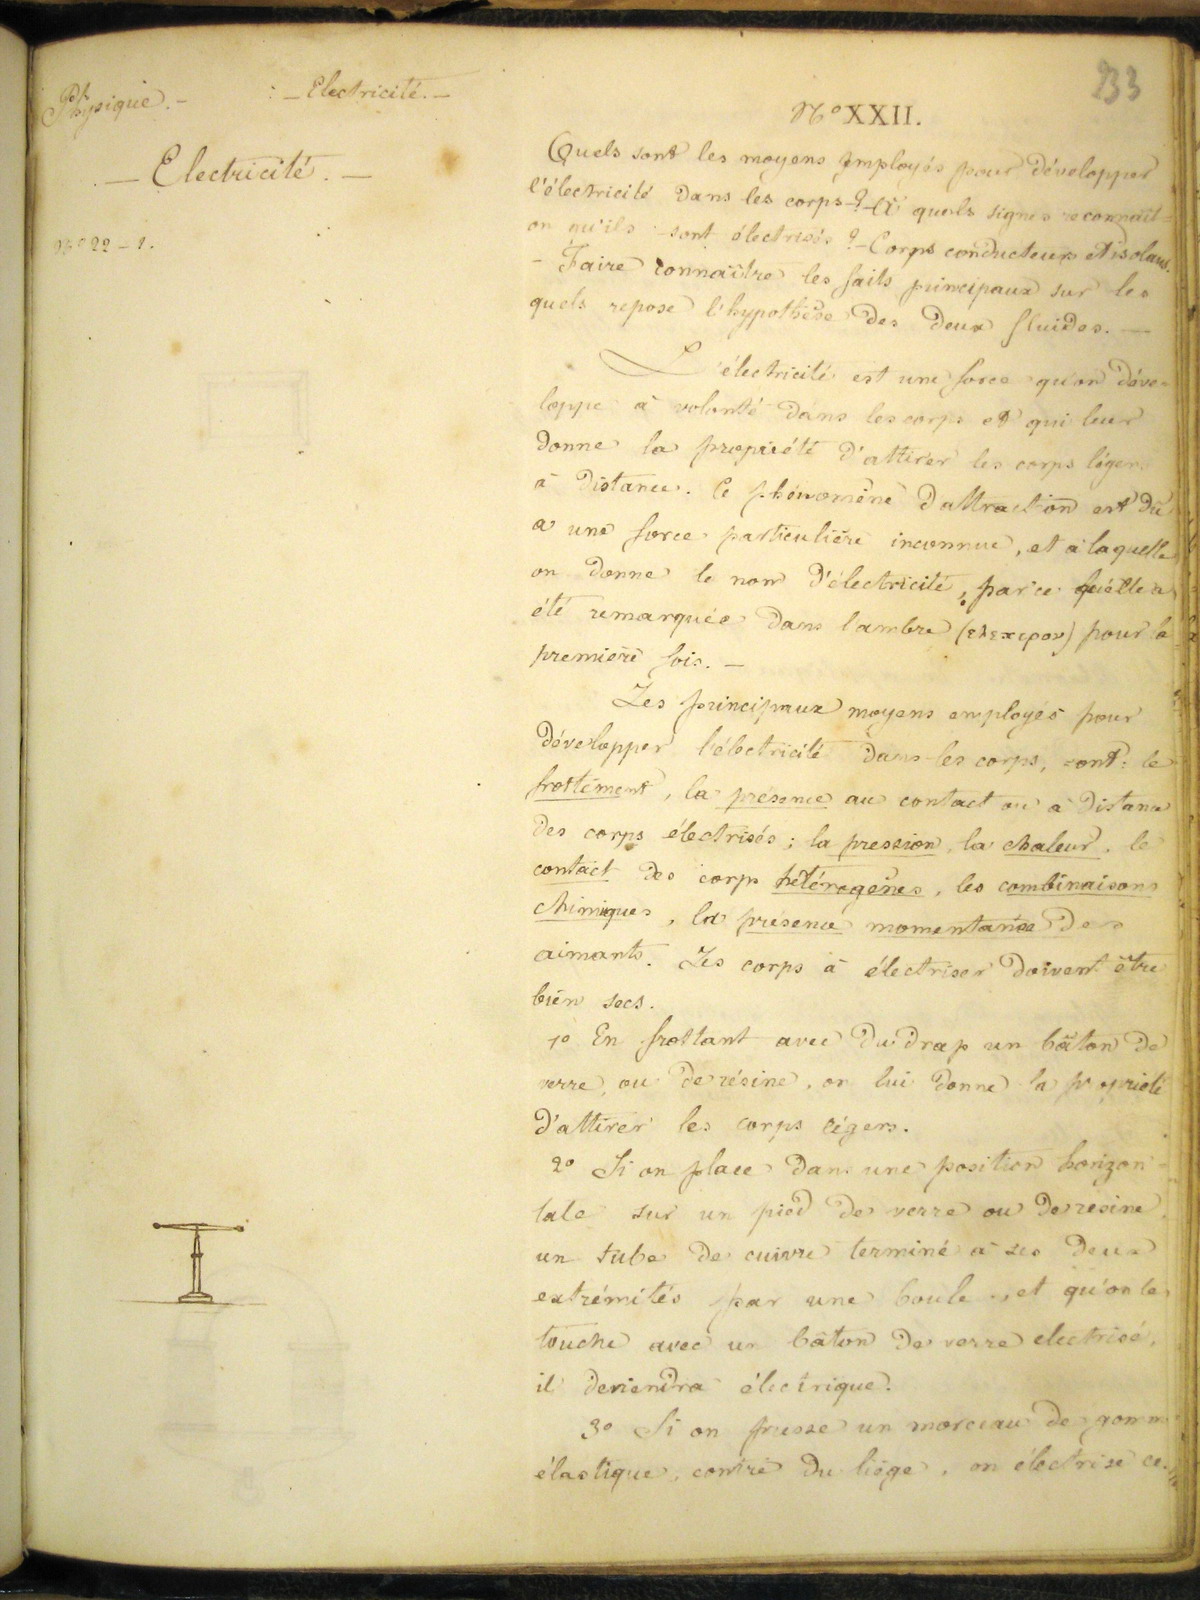 Physique. -
: - Electricité. -
- Electricité. -
N° 22 - 1.
233
N° XXII.
Quels sont les moyens employés pour développer
l'électricité dans les corps ? - Et quels signes reconnaît-
on qu'ils sont électrisés ? - Corps conducteurs et isolans.
- Faire connaître les faits principaux sur les
quels repose l'hypothèse des deux fluides. -
L'électricité est une force qu'on déve-
loppe à volonté dans les corps et qui leur
donne la propriété d'attirer les corps légers
à distance. Ce phénomène d'attraction est dû
à une force particulière inconnue, et à laquelle
on donne le nom d'électricité, parce qu'elle a
été remarquée dans l'ambre (ελεχτρον) pour la
première fois. -
Les principaux moyens employés pour
développer l'électricité dans les corps, sont : le
frottement, la présence au contact ou à distance
des corps électrisés ; la pression, la chaleur, le
contact des corps hétérogènes, les combinaisons
chimiques, la présence momentanée des
aimants. Les corps à électriser doivent être
bien secs.
1° En frottant avec du drap un bâton de
verre, ou de résine, on lui donne la propriété
d'attirer les corps légers.
2° Si on place dans une position horizon-
tale sur un pied de verre ou de résine,
un tube de cuivre terminé à ses deux
extrémités par une boule, et qu'on le
touche avec un bâton de verre electrisé,
il deviendra électrique.
3° Si on presse un morceau de gomm
élastique, contre du liège, on électrise ce